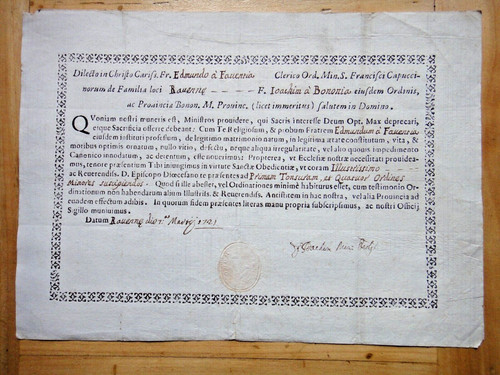 Dilecto in Christo Cariss. Fr. Edmundo à Faventia Clerico Ord. Min. S. Francisci Capucci-
norum de Familia loci Ravennę F. Ioachim à Bononia eiusdem Ordinis,
ac Provincia Bonon. M. Provinc. (licet immeritus) salutem in Domino.
QVoniam nostri muneris est, Ministros providere, qui Sacris interesse Deum Opt. Max deprecari,
eique Sacrificia offerre debeant: Cum Te Religiosum, & probum Fratrem Edmundum à Faventia
eiusdem instituti professum, de legitimo matrimonio natum, in legitima ætate constitutum, vita, &
moribus optimis ornatum, nullo vitio, defectu, neque aliqua irregularitate, vel alio quovis impedimento
Canonico innodatum, ac detentum, esse noverimus: Propterea, vt Ecclesiæ nostræ necessitati provideamus,
tenore præsentium Tibi iniungimus in virtute Sactæ Obedientiæ, vt coram Illustrissimo
ac Reverendiss. D. Episcopo Diœcesano te præsentes ad Primam Tonsuram, et Quatuor Ordines
Minores suscipiendos. Quod si ille abesset, vel Ordinationes minimè habiturus esset, cum testimonio Or-
dinationum non habendarum alium Illustriss. & Reverendiss. Antistitem in hac nostra, vel alia Provincia ad
eundem effectum adibis. In quorum fidem præsentes literas manu propria subscripsimus, ac nostri Officij
Sigillo munivimus.
Datum Ravennę die